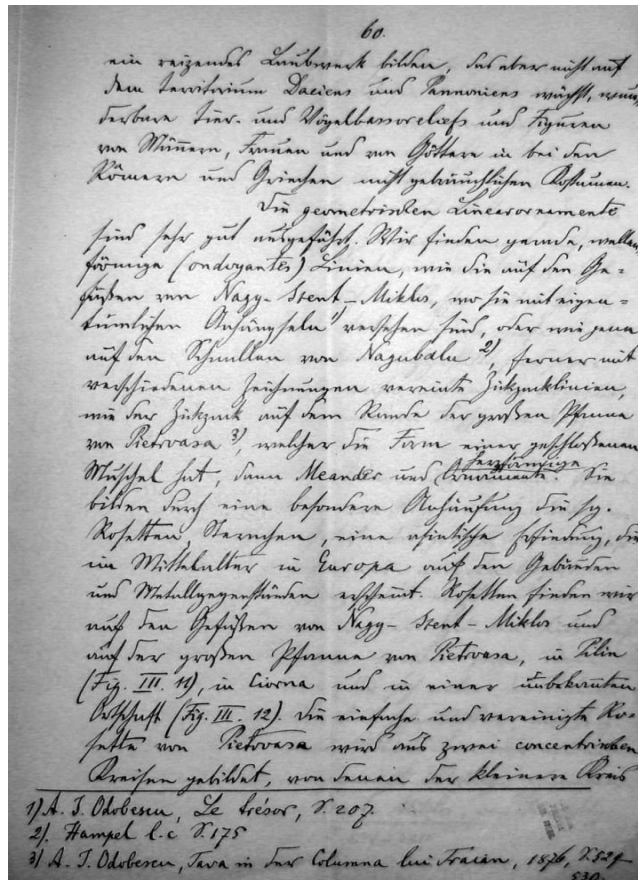 60.
ein reizendes Laubwerk bilden, das aber nicht auf
dem Territorium Daciens und Pannoniens wächst, wun-
derbare Tier- und Vögelbassorelefs und Figuren
von Männern, Frauen und von Göttern in bei den
Römern und Griechen nicht gebräuchlichen Kostumen.
Die geometrischen Linearornamente
sind sehr gut ausgeführt. Wir finden gerade, wellen-
förmige (ondoyantes) Linien, wie die auf den Ge=
fäßen von Nagy-Szent-Miklos, wo sie mit eigen=
tümlichen Anhängseln 1) versehen sind, oder wie jene
auf den Schnallen von Nagubalu 2), ferner mit
verschiedenen Zeichnungen vereinte Zickzacklinien,
wie der Zickzack auf dem Rande der großen Pfanne
von Pietroasa 3), welcher die Form einer geschloßenen
Muschel hat, dann Meander und herzförmige Ornamente. Sie
bilden durch eine besondere Anhäufung die sg.
Rosetten Sternchen, eine asiatische Erfindung, die
im Mittelalter in Europa auf den Gebäuden
und Metallgegenständen erscheint. Rosetten finden wir
auf den Gefäßen von Nagy-Szent-Miklos und
auf der großen Pfanne von Pietroasa, in Pilin
(Fig. III. 11), in Ciorna und in einer unbekannten
Ortschaft (Fig. III. 12). Die einfache und vereinigte Ro-
sette von Pietroasa wird aus zwei concentrischen
Kreisen gebildet, von denen der kleinere Kreis
1) A. I. Odobescu, Le trésor, S. 207.
2). Hampel l.c S. 175
3) A. I. Odobescu, in der Columna lui Traian, 1876, S. 529-
530.